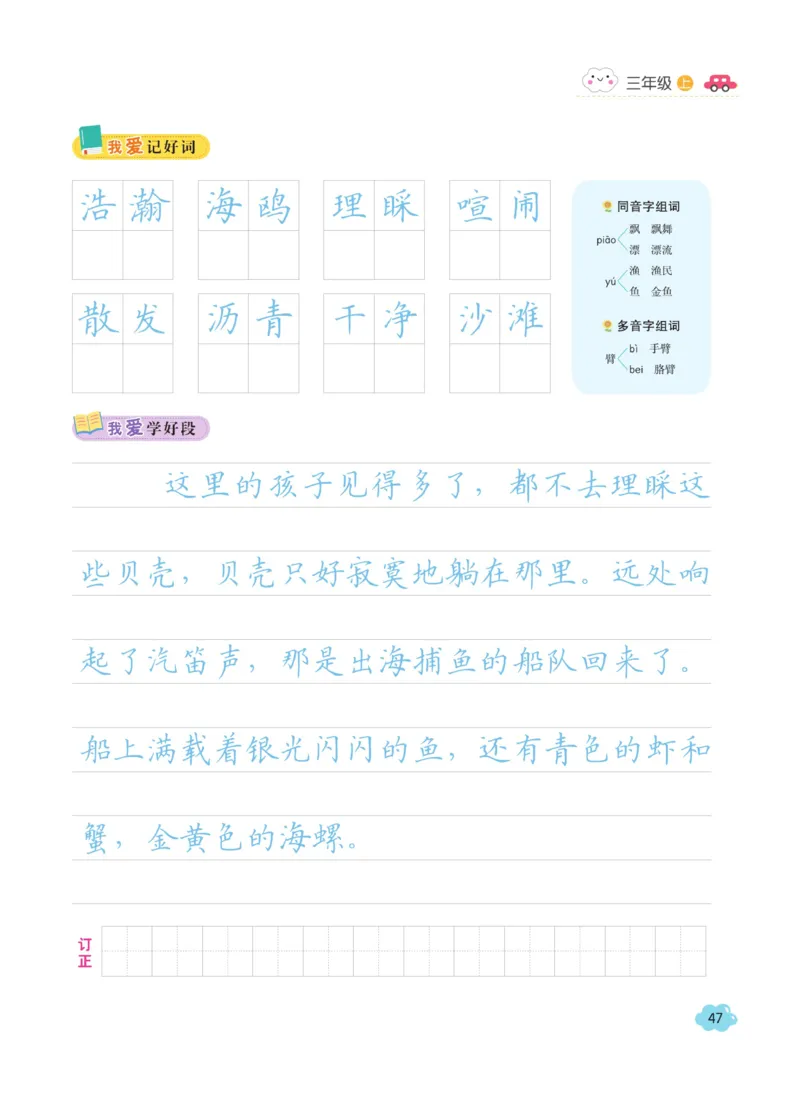 三年级 上
我爱记好词
浩瀚 海鸥 理睬 喧闹
散发 沥青 干净 沙滩
同音字组词
piāo
飘 飘舞
漂 漂流
yú
渔 渔民
鱼 金鱼
多音字组词
臂
bì 手臂
bei 胳臂
我爱学好段
这里的孩子见得多了，都不去理睬这
些贝壳，贝壳只好寂寞地躺在那里。远处响
起了汽笛声，那是出海捕鱼的船队回来了。
船上满载着银光闪闪的鱼，还有青色的虾和
蟹，金黄色的海螺。
订正
47